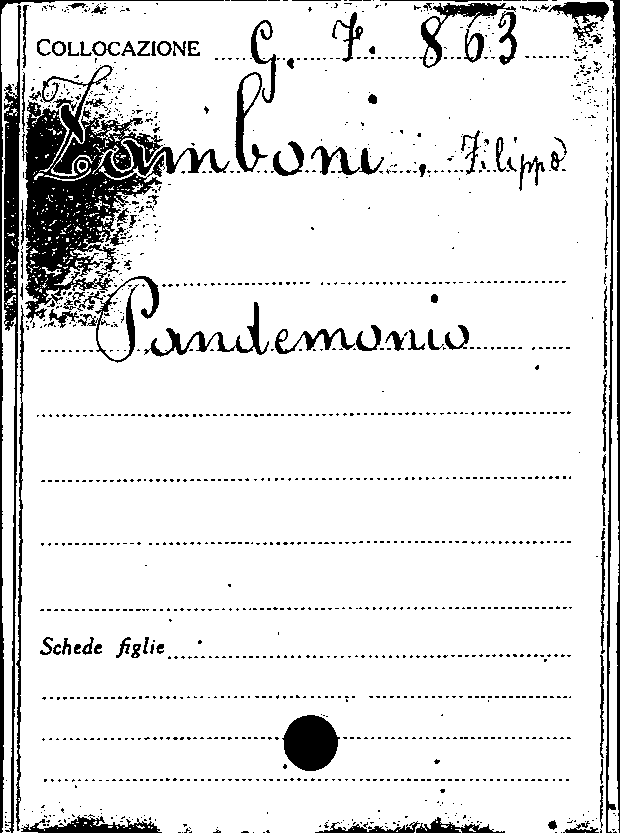 COLLOCAZIONE G. F. 863
Zamboni, Filippo
Pandemonio
Schede figlie